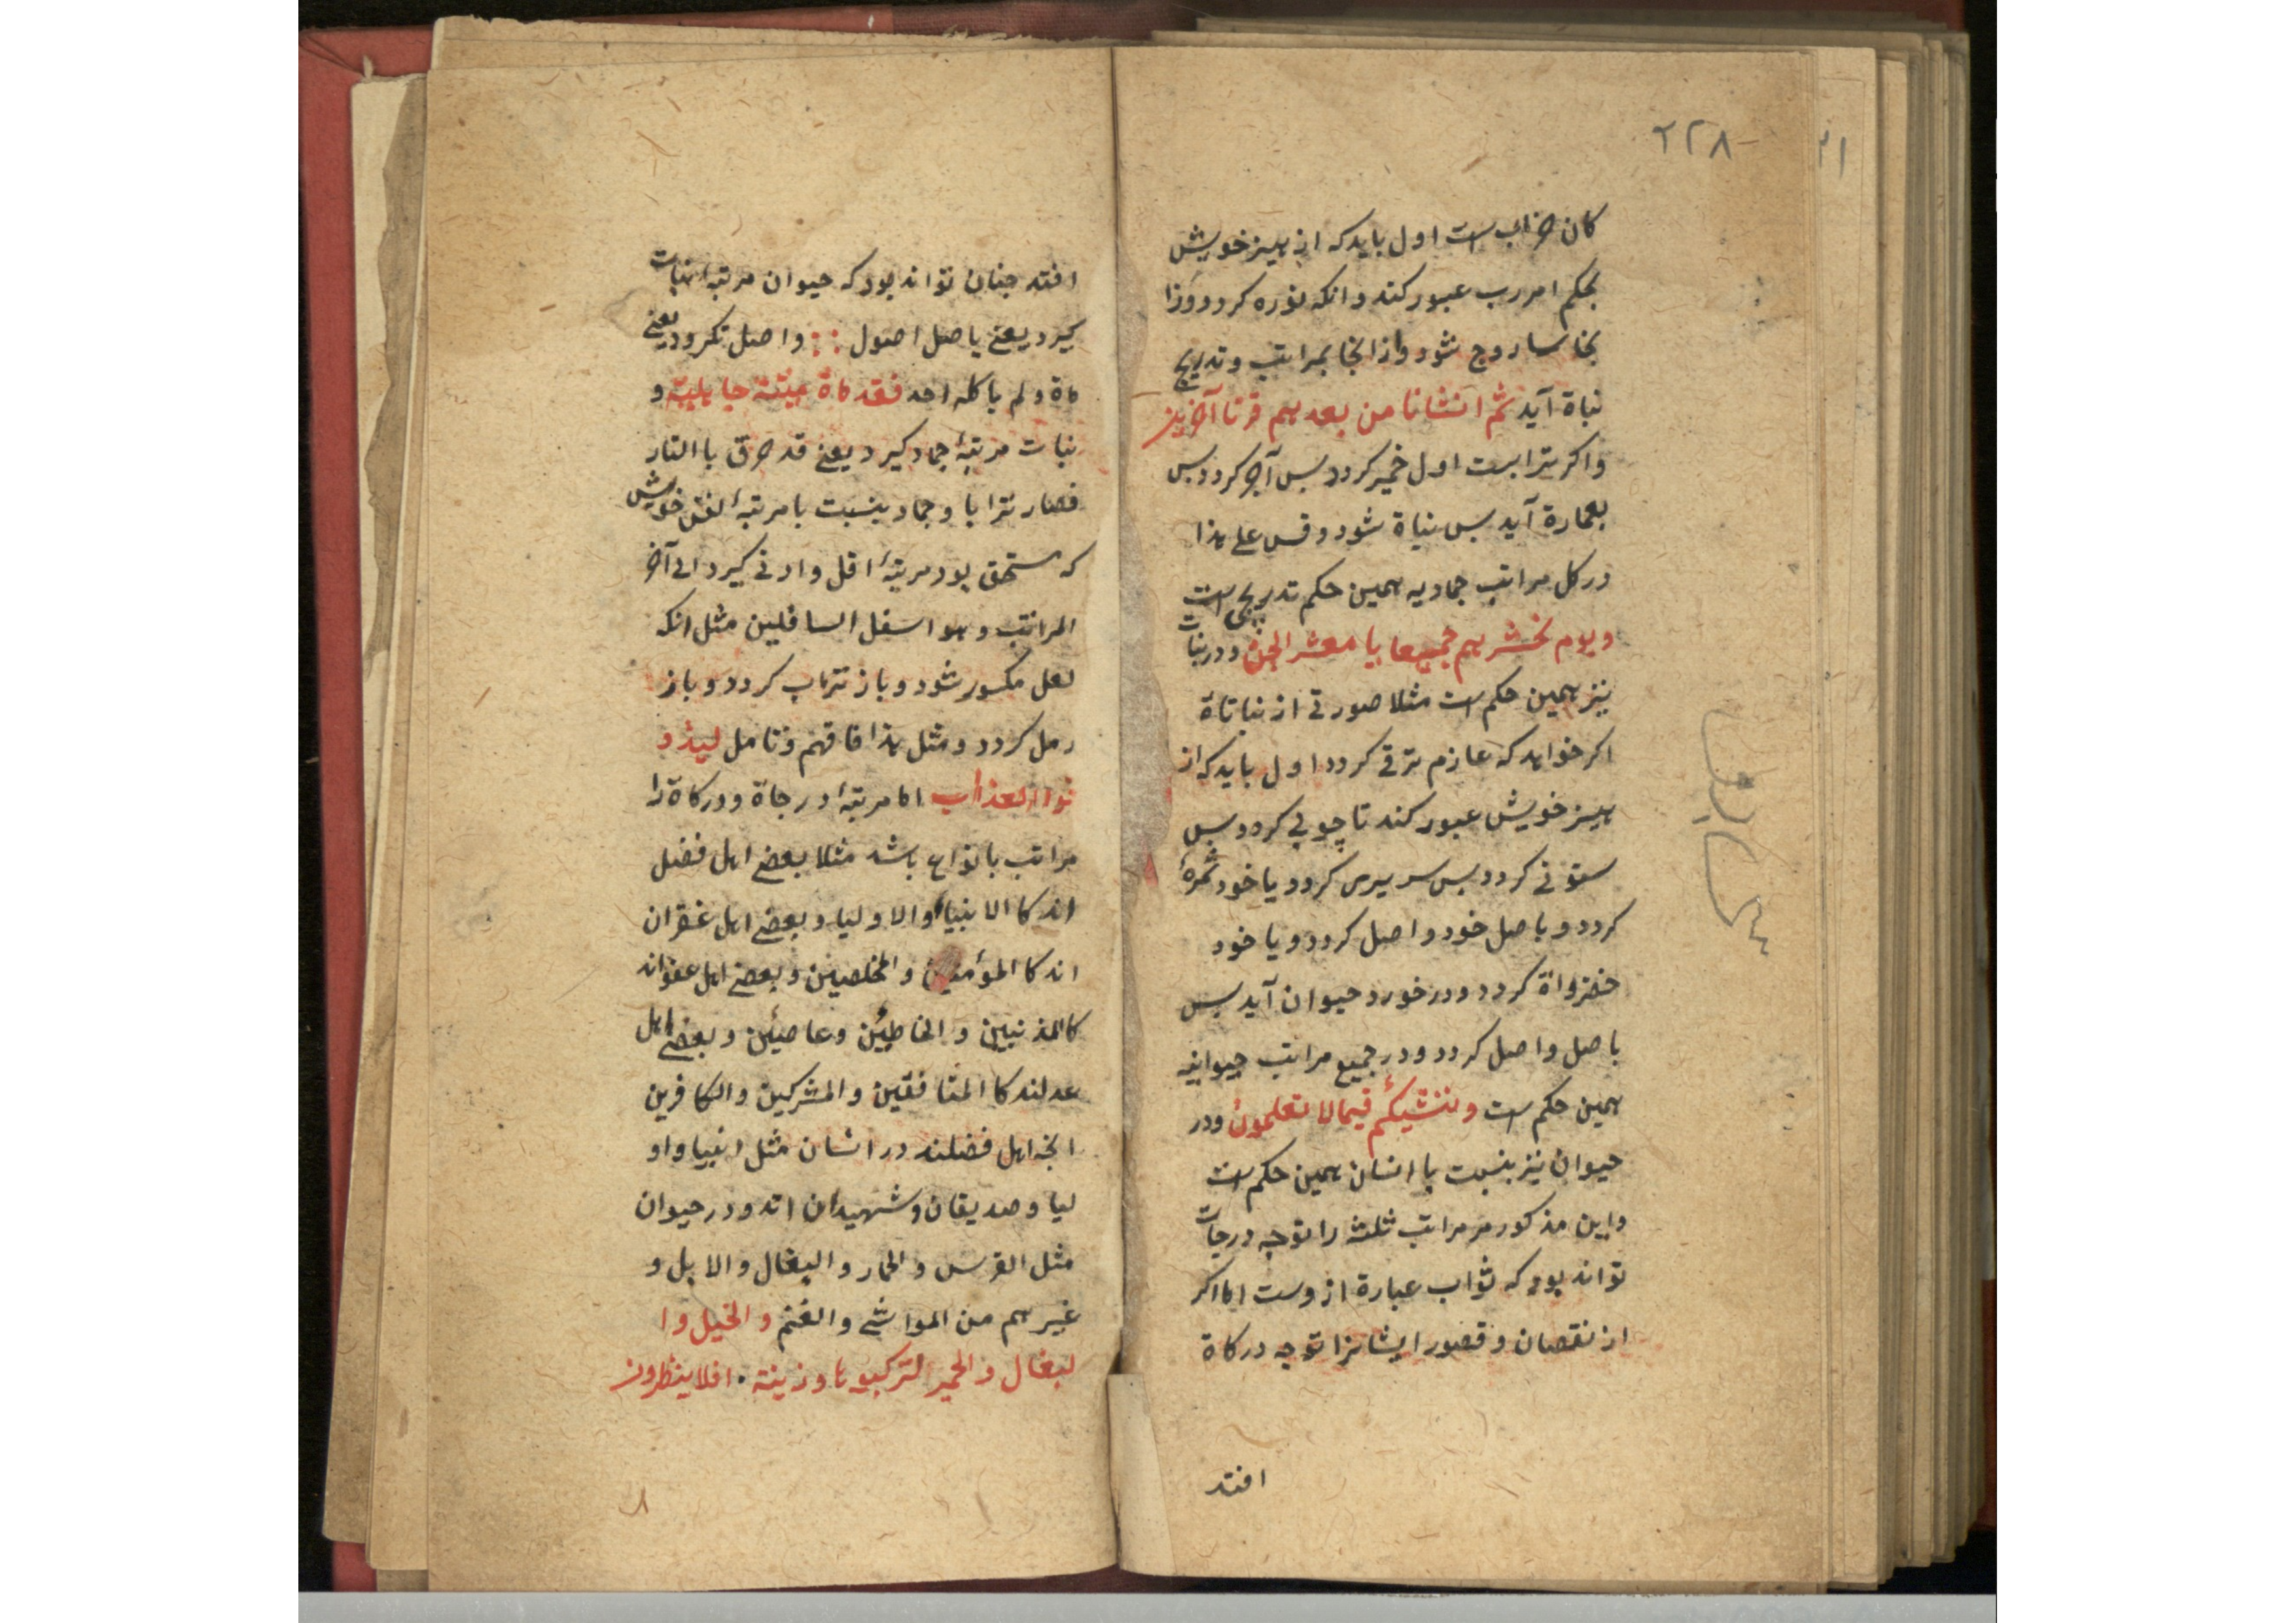 ۲۲۸
کان خرابست اول باید که از هیز خویش
بحکم امر رب عبور کند و انکه نوره کردد و زا
بخا ساروج شود و از انجا بمراتب و تدریج
نباة آید ثم انشانا من بعدهم قرنا آخرین
و اکر ترابست اول خمیر کردد بس آجر کردد بس
بعمارة آید بس نباة شود و قس علی هذا
در کل مراتب جمادیه همین حکم تدریجی است
و یوم نحشرهم جمیعا یا معشر الجن و در نبات
نیز همین حکم است مثلا صورتی از نباتاة
اکر خواهد که عازم ترقی کردد اول باید که از
هیز خویش عبور کند تا چوبی کردد بس
ستونی کردد بس سریری کردد یا خود ثمرهٔ
کردد و باصل خود واصل کردد و یا خود
خضرواة کردد و در خورد حیوان آید بس
باصل واصل کردد و در جمیع مراتب حیوانیه
همین حکم است و ننشیکم فیما لا تعلمون و در
حیوان نیز بنسبت با انسان همین حکم است
و این مذکور مر مراتب ثلثه را توجه درجات
تواند بود که ثواب عبارة از وست اما اکر
از نقصان و قصور ایشانرا توجه درکاة
افتد
افتد جنان تواند بود که حیوان مرتبهٔ نبات
کیرد یعنی باصل اصول :: واصل نکردد یعنی
ماة و لم یاکله احد فقد ماة میتة جاهلیة و
نبات مرتبهٔ جماد کیرد یعنی قد حرق با النار
فصار ترابا و جماد بنسبت با مرتبهٔ خویش
که مستحق بود مرتبهٔ اقل و ادنی کیرد الی آخر
المراتب و هو اسفل السافلین مثل انکه
لعل مکسور شود و باز تراب کردد و باز
رمل کردد و مثل هذا فافهم و تامل لیذو
قوا العذاب اما مرتبهٔ درجاة و درکاة را
مراتب بانواع باشد مثلا بعضی اهل فضل
اند کا الانبیاء و الاولیا و بعضی اهل غفران
اند کا المؤمنین و المخلصین و بعضی اهل عفواند
کالمذنبین و الخاطئین و عاصین و بعضی اهل
عدلند کا المنافقین و المشرکین و الکافرین
انجه اهل فضلند در انسان مثل انبیا و او
لیا و صدیقان و شهیدان اند و در حیوان
مثل الفرس و الحمار و البغال و الابل و
غیرهم من المواشی و الغنم و الخیل و ا
لبغال و الحمیر لترکبوها و زینة . افلا ینظرون